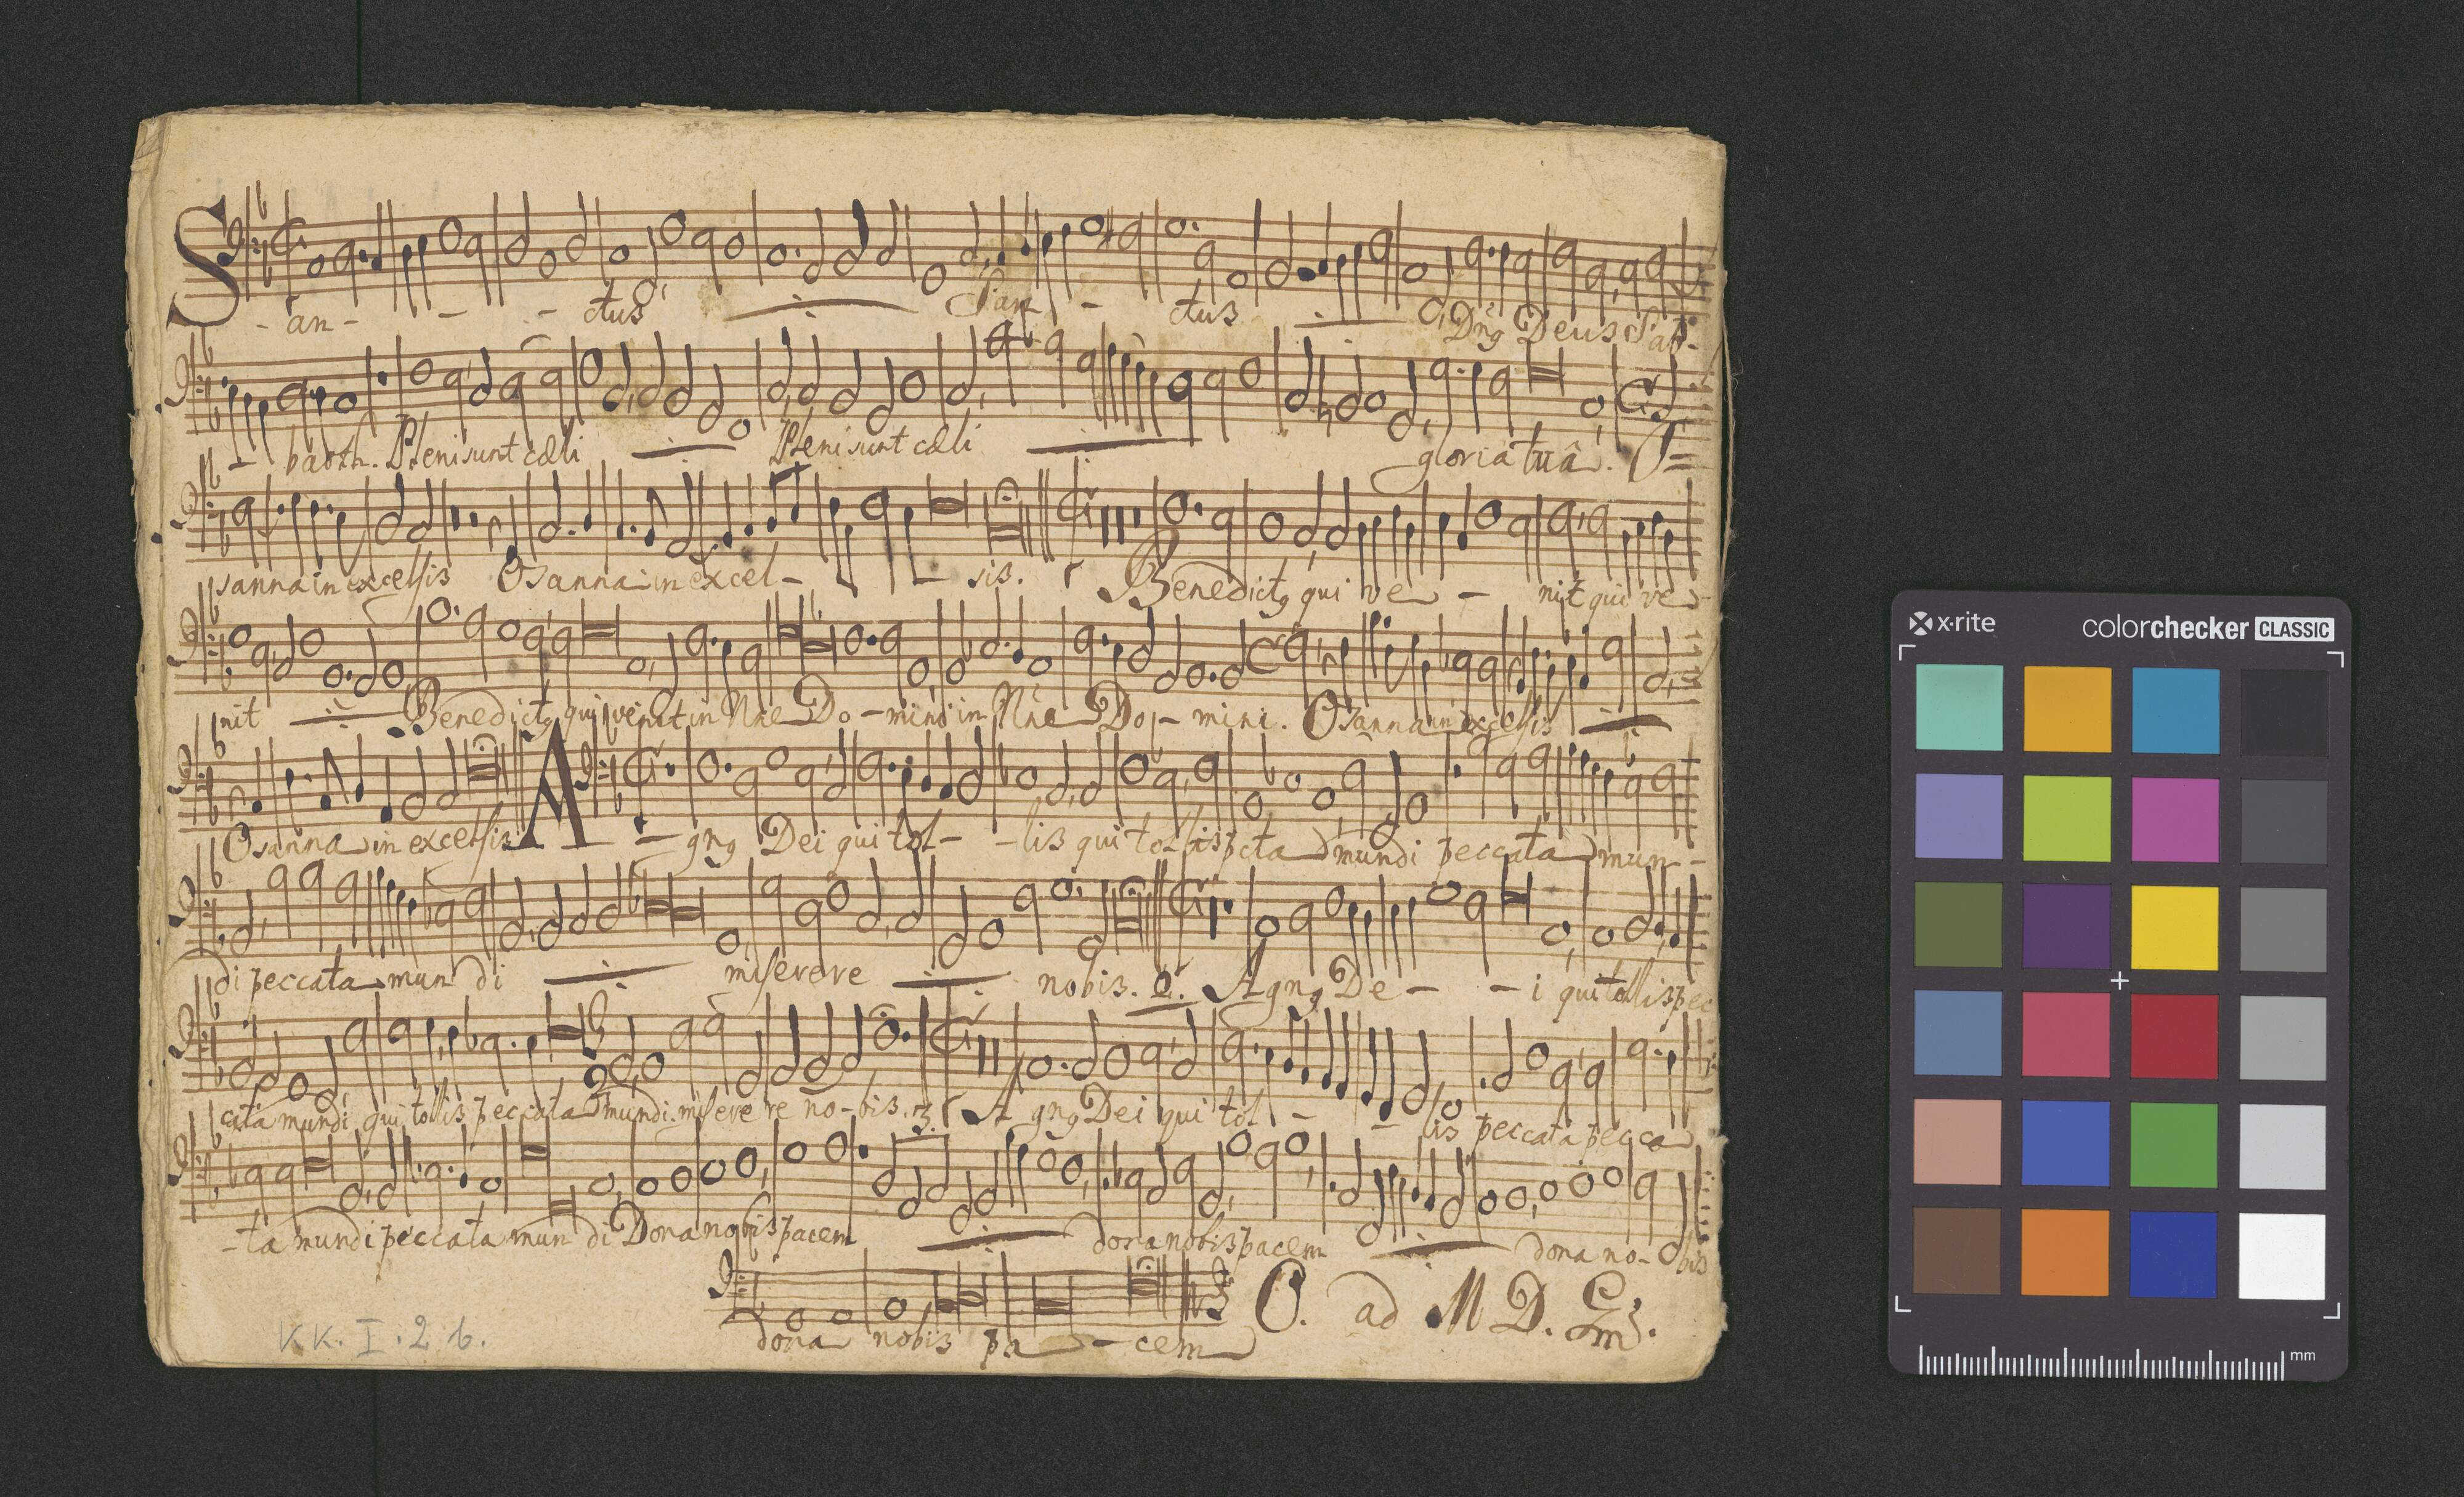 S-an - - - ctus San - ctus Dn̄9 Deus Sab-
- baoth. Pleni sunt cæli Pleni sunt cæli gloria tuâ. O=
sanna in excelsis Osanna in excel - - sis. Benedict9 qui ve - nit qui ve-
nit Benedict9 qui venit in Nn̄e Do - mini in Nn̄e Do - mini. Osanna in excelsis
Osanna in excelsis A - gn9 Dei qui tol - - lis qui tollis pcta mundi peccata mun -
di peccata mun di miserere nobis. 2. Agn9 De - - i qui tollis pec
cata mundi qui tollis peccata mundi. miserere no - bis. 3. A gn9 Dei qui tol - - lis peccata pecca
- ta mundi peccata mun di Dona nobis pacem dona nobis pacem dona no - bis
dona nobis pa - cem O. ad M D. G
KK. I. 2 b.
x·rite colorchecker CLASSIC
mm